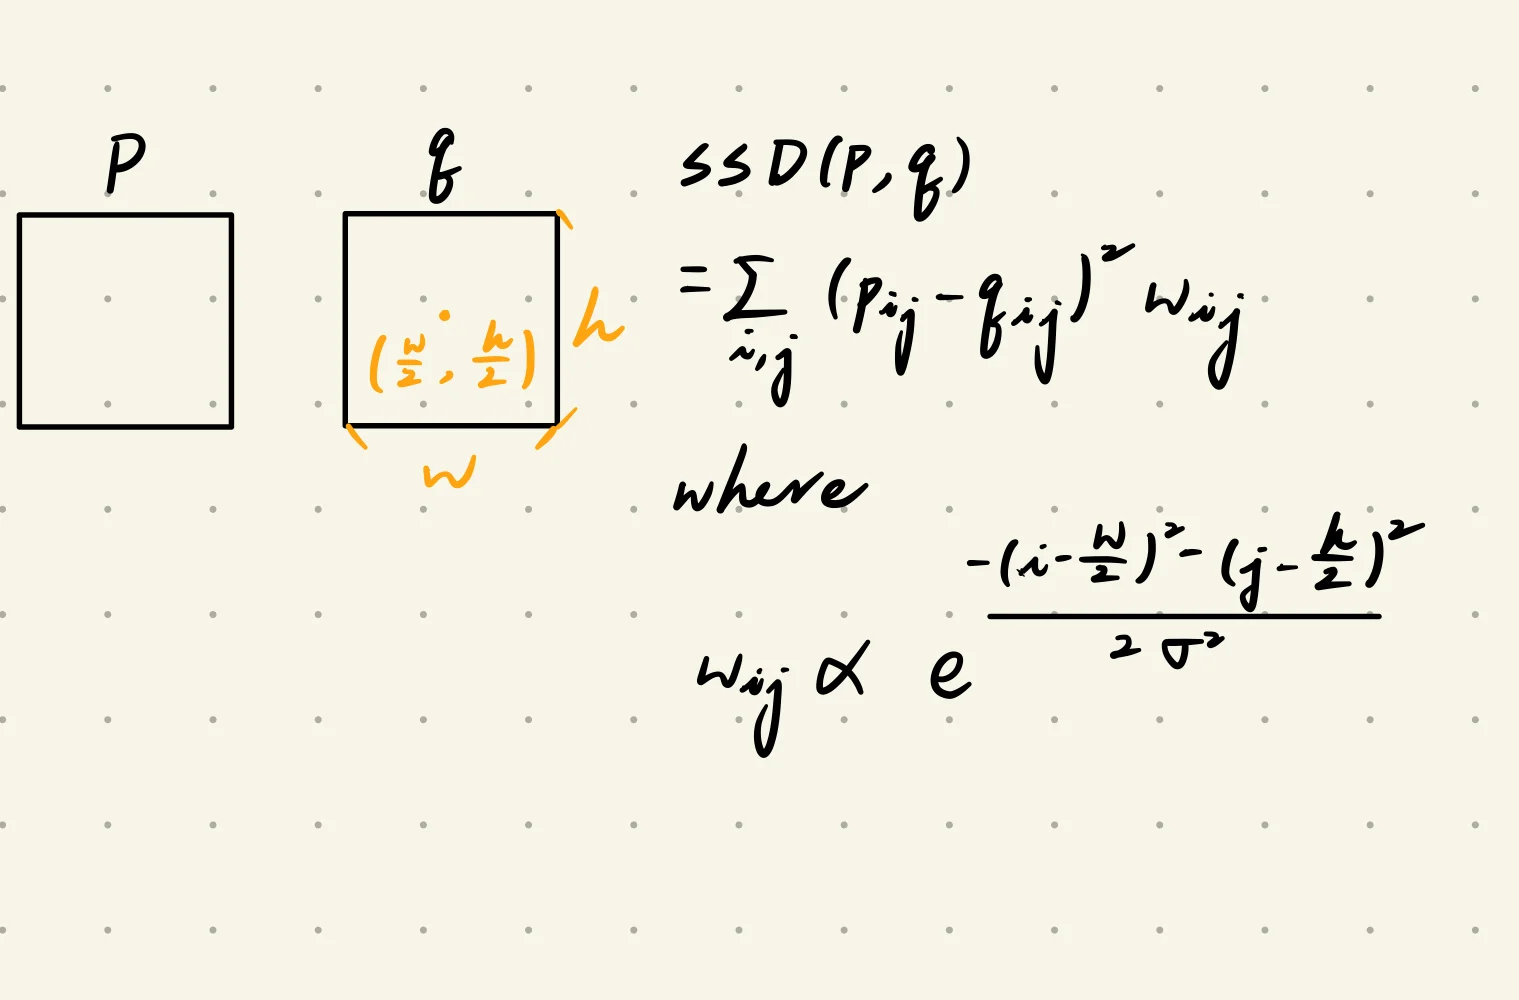 P q
h
(w/2, h/2)
w
SSD(P, q)
= Σ_{i,j} (p_{ij} - q_{ij})² w_{ij}
where
w_{ij} ∝ e^{(-(i - w/2)² - (j - h/2)²) / 2σ²}